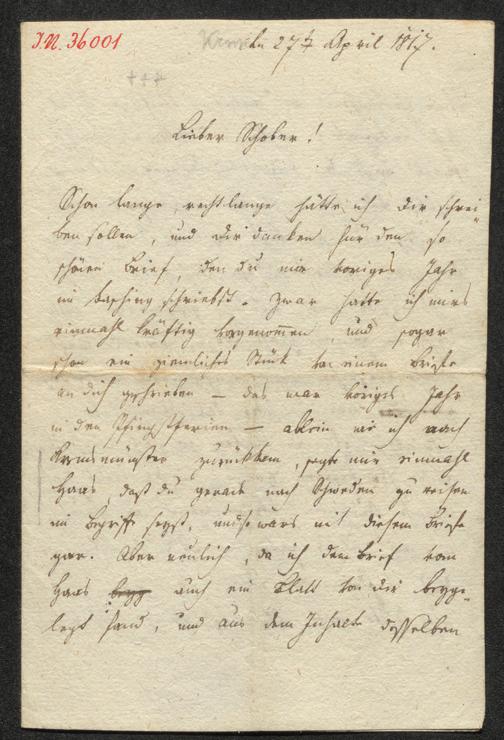 I.N. 36001
den 27t April 1817.
Lieber Schober!
Schon lange, recht lange hätte ich dir schrei-
ben sollen, und dir danken für den so
schönen Brief, den du mir voriges Jahr
im Fasching schriebst. Zwar hatte ich mirs
einmahl kräftig vorgenommen, und sogar
schon ein ziemliches Stück von einem Briefe
an dich geschrieben – das war voriges Jahr
in den Pfingstferien – allein wie ich nach
Kremsmünster zurückkam, sagte mir einmahl
Haas, daß du gerade nach Schweden zu reisen
im Begriffe seyst, und so wars mit diesem Briefe
gar. Aber neulich, da ich dem Brief vom
Haas auch ein Blatt von dir beyge-
legt fand, und aus dem Inhalte desselben